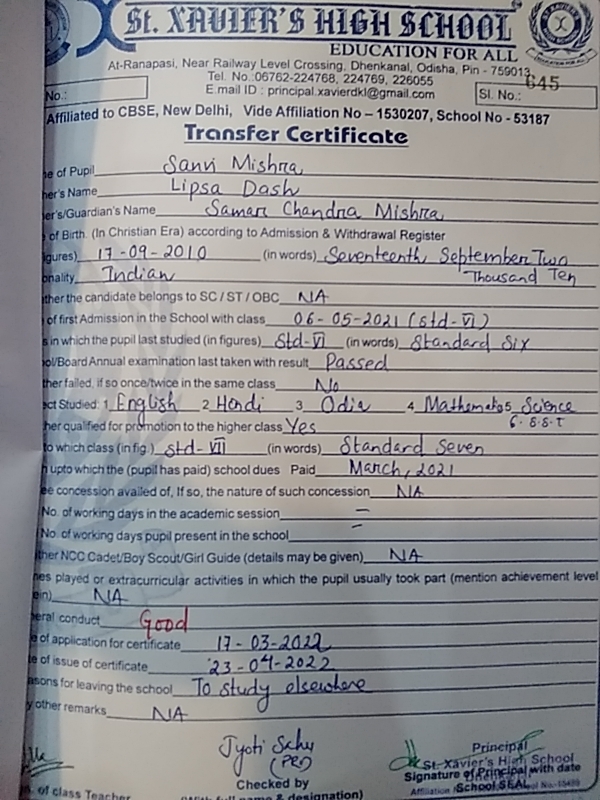 St. XAVIER'S HIGH SCHOOL
EDUCATION FOR ALL
At-Ranapasi, Near Railway Level Crossing, Dhenkanal, Odisha, Pin - 759013
Tel. No.:06762-224768, 224769, 226055
E mail ID : principal.xavierdkl@gmail.com
No.:
Sl. No.: 645
Affiliated to CBSE, New Delhi, Vide Affiliation No – 1530207, School No - 53187
Transfer Certificate
e of Pupil Sanvi Mishra
her's Name Lipsa Dash
er's/Guardian's Name Saman Chandra Mishra
of Birth. (In Christian Era) according to Admission & Withdrawal Register
igures) 17-09-2010 (in words) Seventeenth September Two
Thousand Ten
onality Indian
ther the candidate belongs to SC / ST / OBC NA
of first Admission in the School with class 06-05-2021 (std-VI)
s in which the pupil last studied (in figures) Std-VI (in words) Standard Six
ol/Board Annual examination last taken with result Passed
her failed, if so once/twice in the same class No
ect Studied: 1 English 2 Hindi 3 Odia 4 Mathematics 5 Science
6. S.S.T
her qualified for promotion to the higher class Yes
to which class (in fig.) std-VII (in words) Standard Seven
upto which the (pupil has paid) school dues Paid March, 2021
ee concession availed of, If so, the nature of such concession NA
No. of working days in the academic session –
No. of working days pupil present in the school –
ther NCC Cadet/Boy Scout/Girl Guide (details may be given) NA
nes played or extracurricular activities in which the pupil usually took part (mention achievement level
ein) NA
eral conduct Good
e of application for certificate 17-03-2022
te of issue of certificate 23-04-2022
asons for leaving the school To study elsewhere
y other remarks NA
Jyoti Sahu
Principal
St. Xavier's High School
Signature of Principal with date
School SEAL
Checked by
. of class Teacher
(With full name & designation)